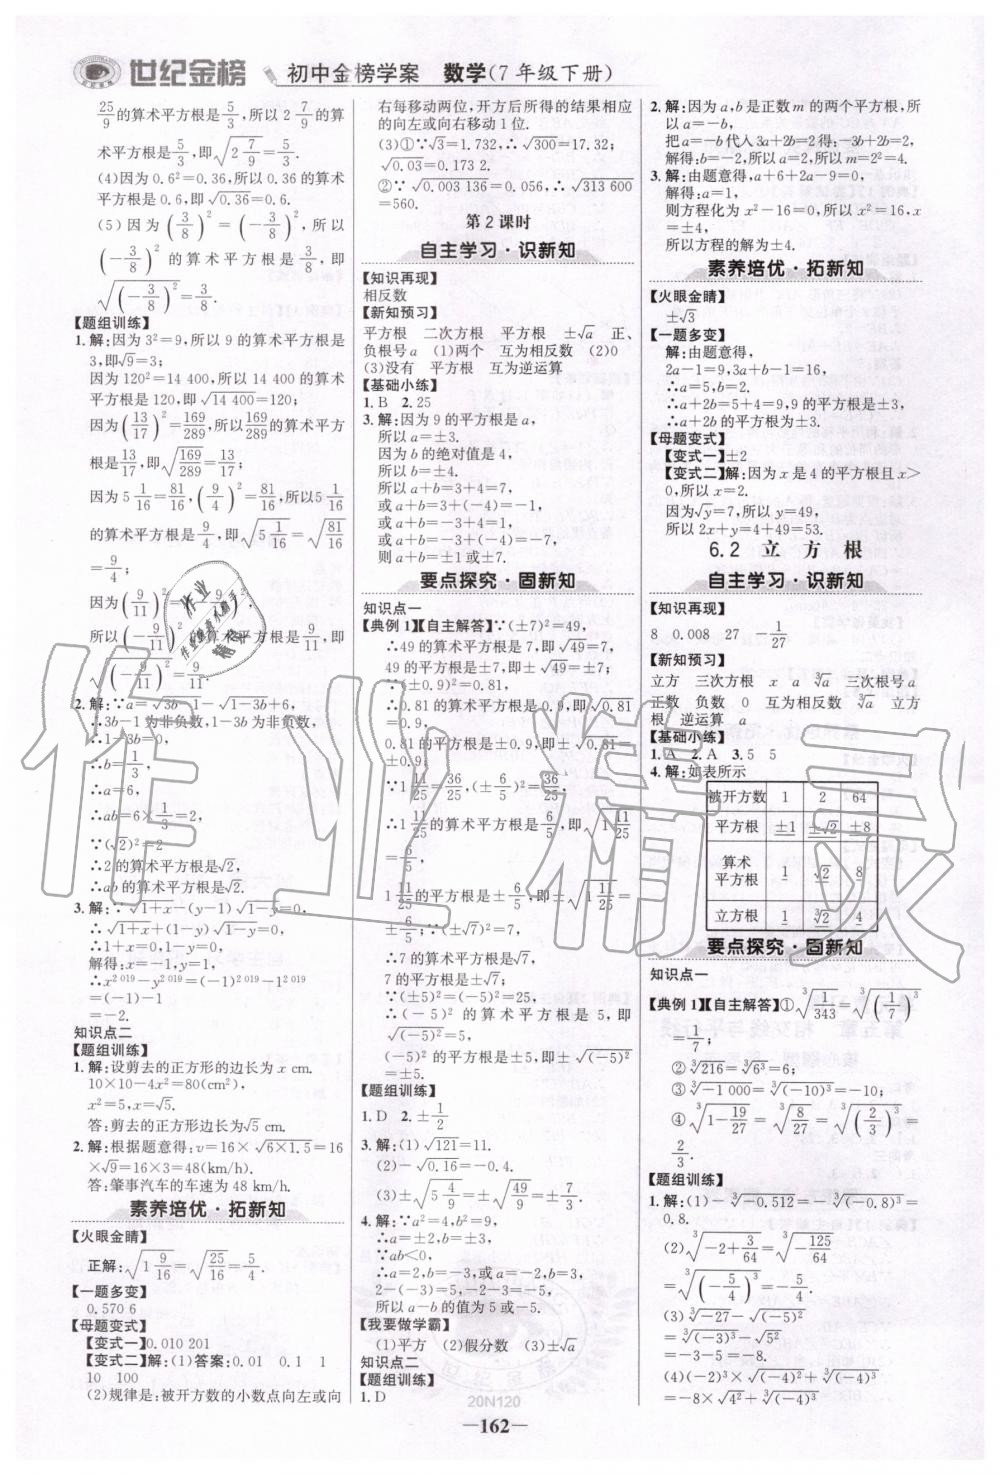 世纪金榜 初中金榜学案 数学(7年级下册)
25/9的算术平方根是5/3,所以2 7/9的算
术平方根是5/3,即√(2 7/9)=5/3.
(4)因为0.6²=0.36,所以0.36的算术
平方根是0.6,即√0.36=0.6.
(5)因为(3/8)²=(-3/8)²,所以
(-3/8)²的算术平方根是3/8,即
√((-3/8)²)=3/8.
【题组训练】
1.解:因为3²=9,所以9的算术平方根是
3,即√9=3;
因为120²=14 400,所以14 400的算术
平方根是120,即√14 400=120;
因为(13/17)²=169/289,所以169/289的算术平方
根是13/17,即√(169/289)=13/17;
因为5 1/16=81/16,(9/4)²=81/16,所以5 1/16
的算术平方根是9/4,即√(5 1/16)=√(81/16)
=9/4;
因为(9/11)²=(-9/11)²,
所以(-9/11)²的算术平方根是9/11,即
√((-9/11)²)=9/11.
2.解:∵a=√(3b-1)-√(1-3b)+6,
∴3b-1为非负数,1-3b为非负数,
∴1-3b=0,
∴b=1/3,
∴a=6,
∴ab=6×1/3=2,
∵(√2)²=2
∴2的算术平方根是√2,
∴ab的算术平方根是√2.
3.解:∵√(1+x)-(y-1)√(1-y)=0,
∴√(1+x)+(1-y)√(1-y)=0,
∴1+x=0,1-y=0,
解得:x=-1,y=1,
∴x²⁰¹⁹-y²⁰¹⁹=(-1)²⁰¹⁹-1²⁰¹⁹
=-2.
知识点二
【题组训练】
1.解:设剪去的正方形的边长为x cm.
10×10-4x²=80(cm²),
x²=5,x=√5.
答:剪去的正方形边长为√5 cm.
2.解:根据题意得:v=16×√(6×1.5)=16
×√9=16×3=48(km/h).
答:肇事汽车的车速为48 km/h.
素养培优·拓新知
【火眼金睛】
正解:√(1 9/16)=√(25/16)=5/4.
【一题多变】
0.570 6
【母题变式】
【变式一】0.010 201
【变式二】解:(1)答案:0.01 0.1 1
10 100
(2)规律是:被开方数的小数点向左或向
右每移动两位,开方后所得的结果相应
的向左或向右移动1位.
(3)①∵√3=1.732,∴√300=17.32;
√0.03=0.173 2.
②∵√0.003 136=0.056,∴√313 600
=560.
第2课时
自主学习·识新知
【知识再现】
相反数
【新知预习】
平方根 二次方根 平方根 ±√a 正、
负根号a (1)两个 互为相反数 (2)0
(3)没有 平方根 互为逆运算
【基础小练】
1.B 2.25
3.解:因为9的平方根是a,
所以a=±3.
因为b的绝对值是4,
所以b=±4.
所以a+b=3+4=7,
或a+b=3+(-4)=-1,
或a+b=-3+4=1,
或a+b=-3+(-4)=-7,
则a+b=±1或±7.
要点探究·固新知
知识点一
【典例1】【自主解答】∵(±7)²=49,
∴49的算术平方根是7,即√49=7,
49的平方根是±7,即±√49=±7;
∵(±0.9)²=0.81,
∴0.81的算术平方根是0.9,即√0.81
=0.9,
0.81的平方根是±0.9,即±√0.81=
±0.9;
∵1 11/25=36/25,(±6/5)²=36/25,
∴1 11/25的算术平方根是6/5,即√(1 11/25)
=6/5,
1 11/25的平方根是±6/5,即±√(1 11/25)=
±6/5;∵(±√7)²=7,
∴7的算术平方根是√7,
7的平方根是±√7;
∵(±5)²=(-5)²,
∴(-5)²的算术平方根是5,即
√((-5)²)=5,
(-5)²的平方根是±5,即±√((-5)²)=
±5.
【题组训练】
1.D 2.±1/2
3.解:(1)√121=11.
(2)-√0.16=-0.4.
(3)±√(5 4/9)=±√(49/9)=±7/3.
4.解:∵a²=4,b²=9,
∴a=±2,b=±3,
∵ab<0,
∴a=2,b=-3,或a=-2,b=3,
2-(-3)=5,-2-3=-5,
所以a-b的值为5或-5.
【我要做学霸】
(1)平方 (2)假分数 (3)±√a
知识点二
【题组训练】
1.D
2.解:因为a,b是正数m的两个平方根,所
以a=-b,
把a=-b代入3a+2b=2得:-3b+2b=2,
解得:b=-2,所以a=2,所以m=2²=4.
3.解:由题意得,a+6+2a-9=0,
解得:a=1,
则方程化为x²-16=0,所以x²=16,x
=±4,
所以方程的解为±4.
素养培优·拓新知
【火眼金睛】
±√3
【一题多变】
解:由题意得,
2a-1=9,3a+b-1=16,
∴a=5,b=2.
∴a+2b=5+4=9,9的平方根是±3,
∴a+2b的平方根为±3.
【母题变式】
【变式一】±2
【变式二】解:因为x是4的平方根且x>
0,所以x=2.
因为√y=7,所以y=49,
所以2x+y=4+49=53.
6.2 立方根
自主学习·识新知
【知识再现】
8 0.008 27 -1/27
【新知预习】
立方 三次方根 x a ∛a 三次根号a
正数 负数 0 互为相反数 ∛a 立方
根 逆运算 a
【基础小练】
1.A 2.A 3.5 5
4.解:如表所示
被开方数 1 2 64
平方根 ±1 ±√2 ±8
算术
平方根 1 √2 8
立方根 1 ∛2 4
要点探究·固新知
知识点一
【典例1】【自主解答】①∛(1/343)=∛((1/7)³)
=1/7;
②∛216=∛(6³)=6;
③∛(-1 000)=∛((-10)³)=-10;
④∛(1-19/27)=∛(8/27)=∛((2/3)³)=
2/3.
【题组训练】
1.解:(1)-∛(-0.512)=-∛((-0.8)³)=
0.8.
(2)∛(-2+3/64)=∛(-125/64)
=∛((-5/4)³)=-5/4.
(3)∛(-27)-√((-5)²)
=∛((-3)³)-√(5²)
=-3-5=-8.
(4)(-2)³×√((-4)²)+∛((-4)³)
=-8×√(4²)+∛((-4)³)
作业精灵
世纪金榜
20N120
—162—